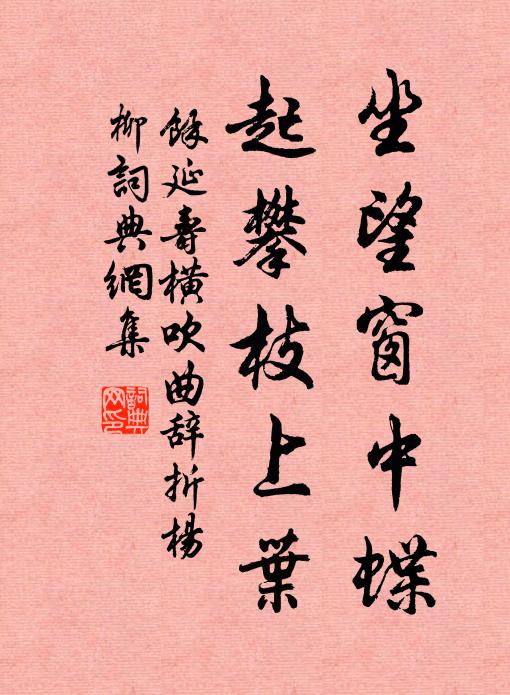 坐望窗中蝶
起攀枝上葉
餘延壽橫吹曲辞折楊
柳詞典網集
詞典
网印